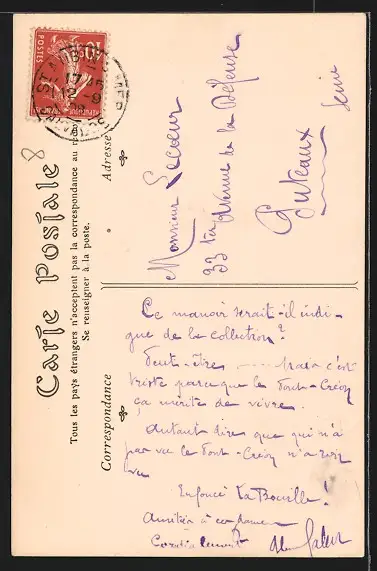 Carte Postale
Tous les pays étrangers n'acceptent pas la correspondance au
Se renseigner à la poste.
Correspondance
Adresse
8
POSTES
10
Monsieur Lecoeur
33 ter Avenue de la Défense
Puteaux
Seine
Ce manoir serait-il indi-
gne de la collection?
Peut-être ---- mais c'est
triste parce que le Pont-Créon
ça mérite de vivre.
Autant dire que qui n'a
pas vu le Pont-Créon n'a rien
vu
Enfoncé La Bouille!
Amitiés à ces dames
Cordialement